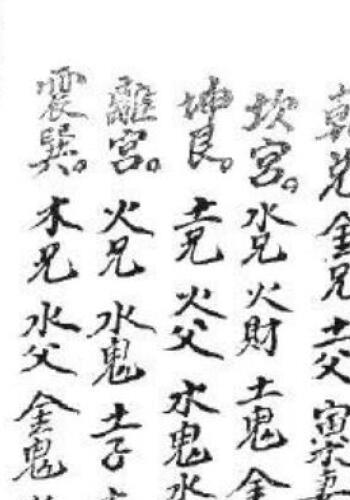 乾兌金兄土父寅
坎宮。水兄火財土鬼金
坤艮。土兄火父木鬼水
離宮。火兄水鬼土子
震巽。木兄水父金鬼